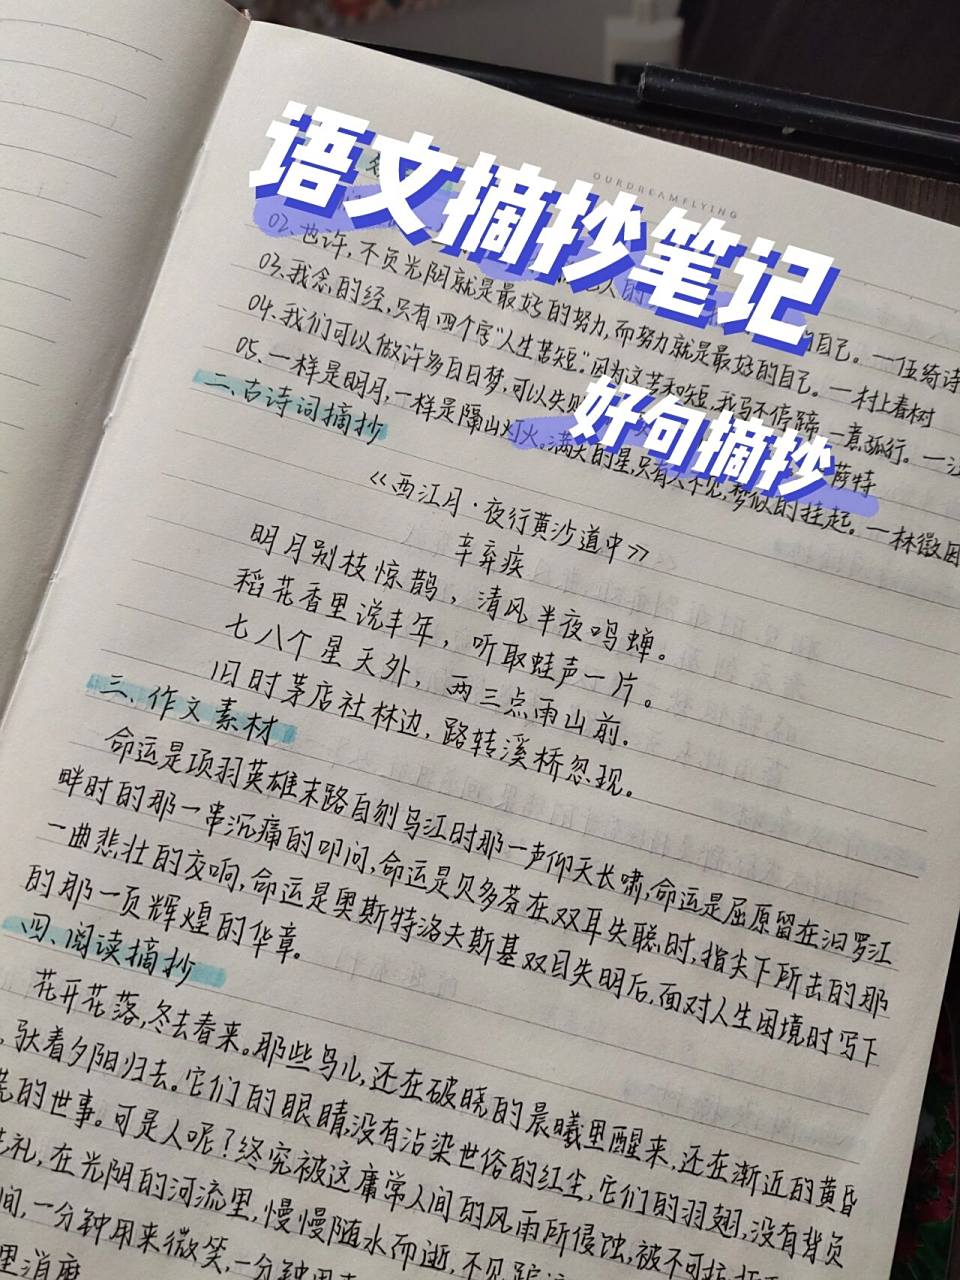 语文摘抄笔记
好句摘抄
OURDREAMFLYING
自己。—伍绮诗
02.也许,不负光阴就是最好的努力,而努力就是最好的自己。—村上春树
03.我念的经,只有四个字"人生苦短".因为这苦和短,我马不停蹄,一意孤行。—
04.我们可以做许多白日梦,可以失 萨特
05.一样是明月,一样是隔山灯火。满天的星,只有人不见,梦似的挂起。—林徽因
二、古诗词摘抄
《西江月·夜行黄沙道中》
辛弃疾
明月别枝惊鹊,清风半夜鸣蝉。
稻花香里说丰年,听取蛙声一片。
七八个星天外,两三点雨山前.
旧时茅店社林边,路转溪桥忽现。
三、作文素材
命运是项羽英雄末路自刎乌江时那一声仰天长啸,命运是屈原留在汨罗江
畔时的那一串沉痛的叩问,命运是贝多芬在双耳失聪时,指尖下所击的那
一曲悲壮的交响,命运是奥斯特洛夫斯基双目失明后,面对人生困境时写下
的那一页辉煌的华章。
四、阅读摘抄
花开花落,冬去春来。那些鸟儿,还在破晓的晨曦里醒来,还在渐近的黄昏
,驮着夕阳归去。它们的眼睛,没有沾染世俗的红尘,它们的羽翅,没有背负
的世事。可是人呢?终究被这庸常人间的风雨所侵蚀,被不可抗
礼,在光阴的河流里,慢慢随水而逝,不见踪
间,一分钟用来微笑,一分钟用来
里消磨